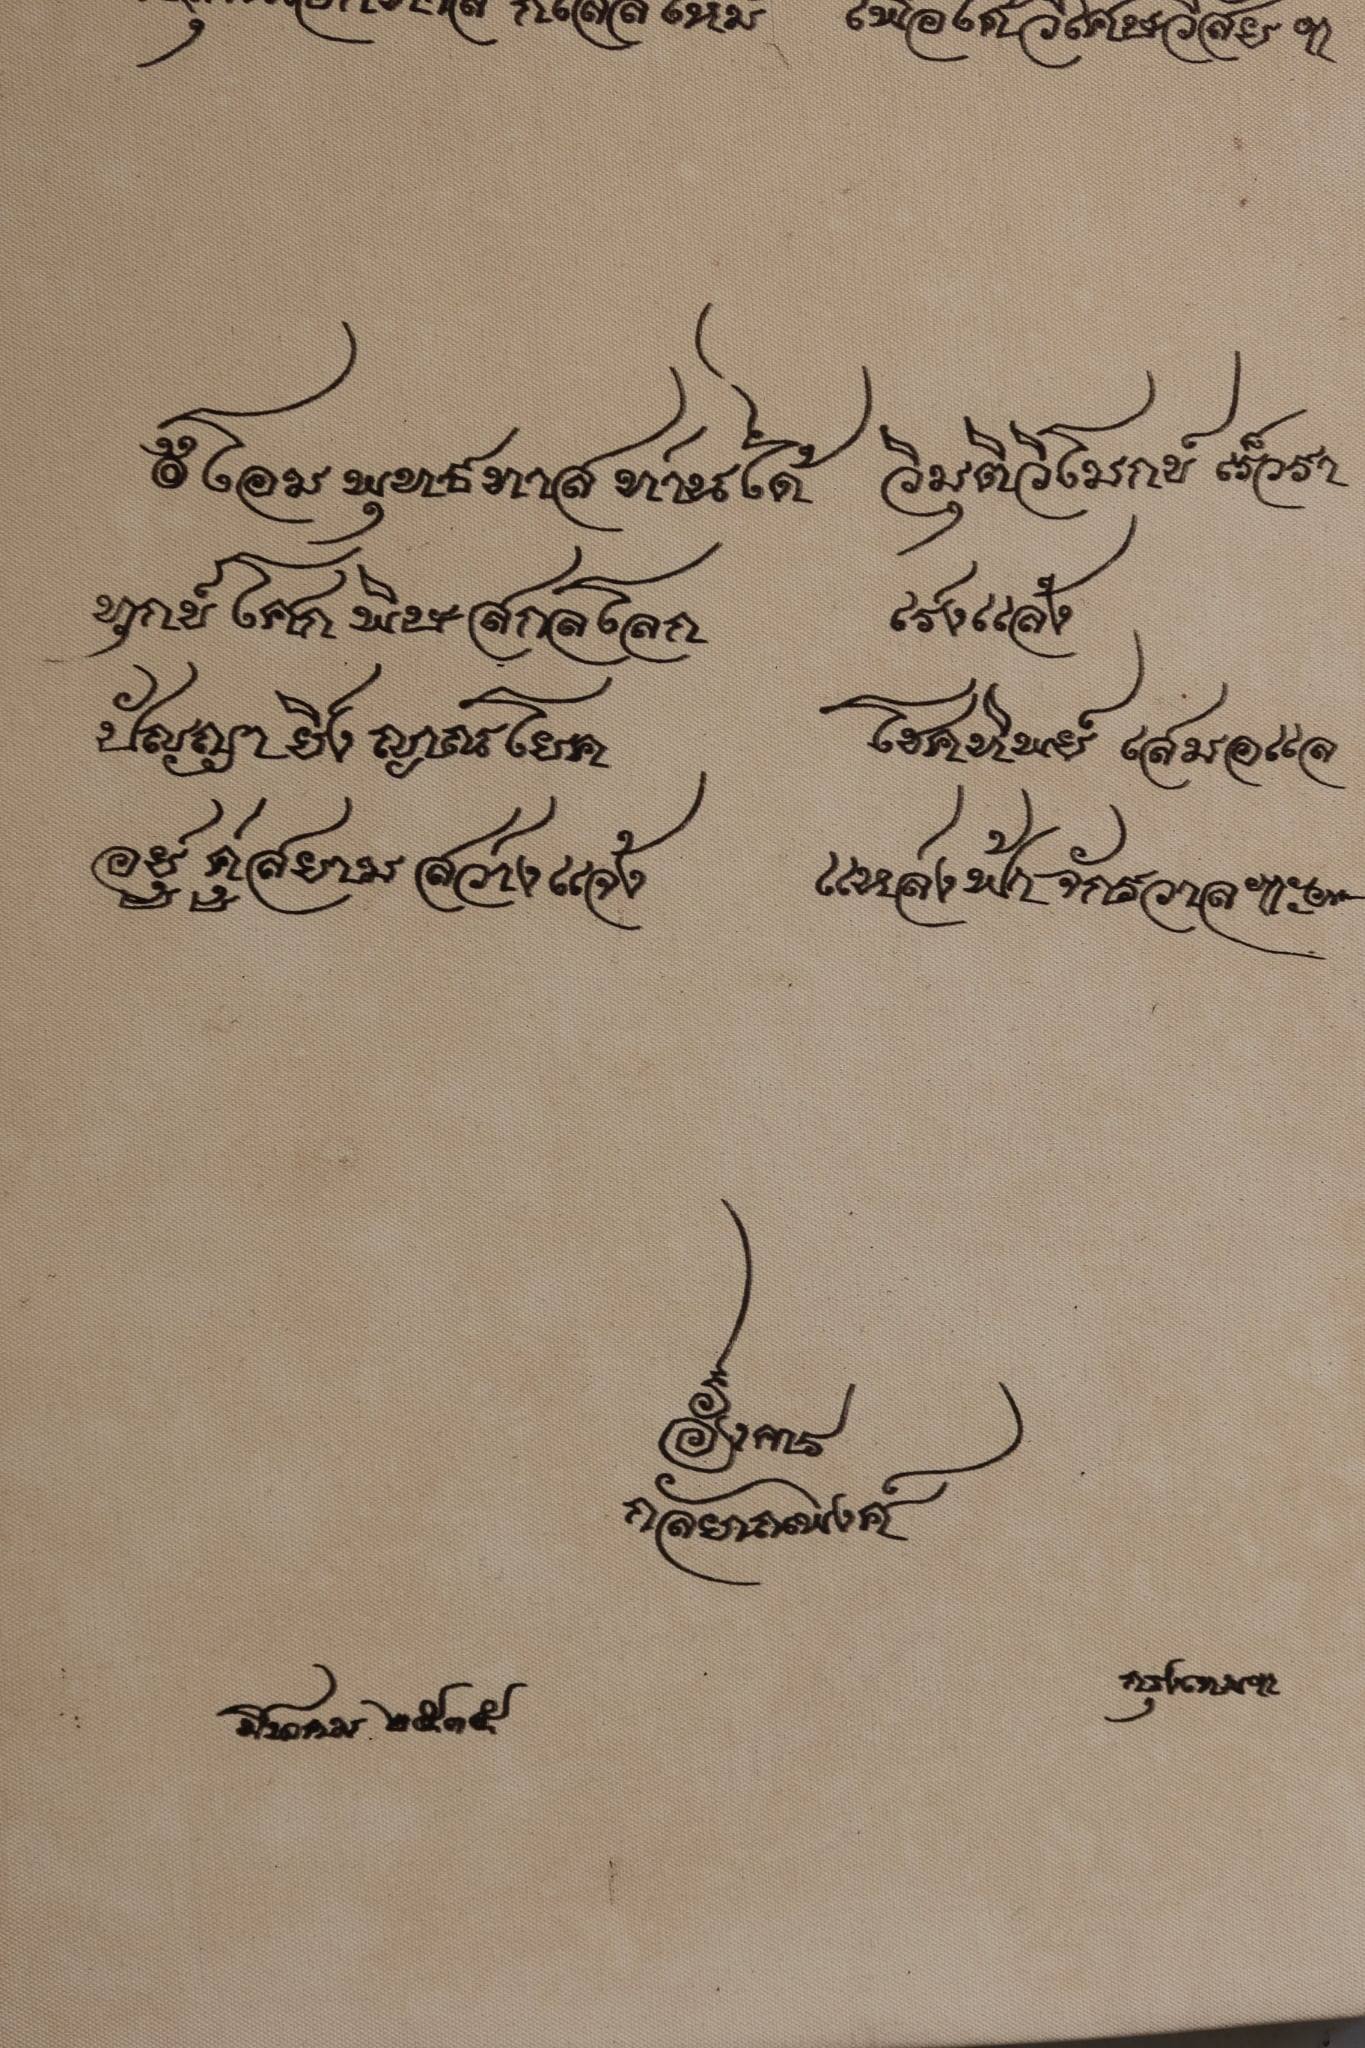 เพื่อได้วิเศษวิสัย ฯ
๏ โอม พุทธทาส ท่านได้ วิมุติวิโมกข์ เร็วรา
ทุกข์ โศก พิษ สกลโลก เร่งแล้ง
ปัญญา ยิ่ง ญาณโยค โชคทิพย์ เสมอแล
อยู่ คู่สยาม สว่างแจ้ง แหล่งฟ้า จักรวาลฯ
อังคาร
กัลยาณพงศ์
มีนาคม ๒๕๓๕
กรุงเทพฯ